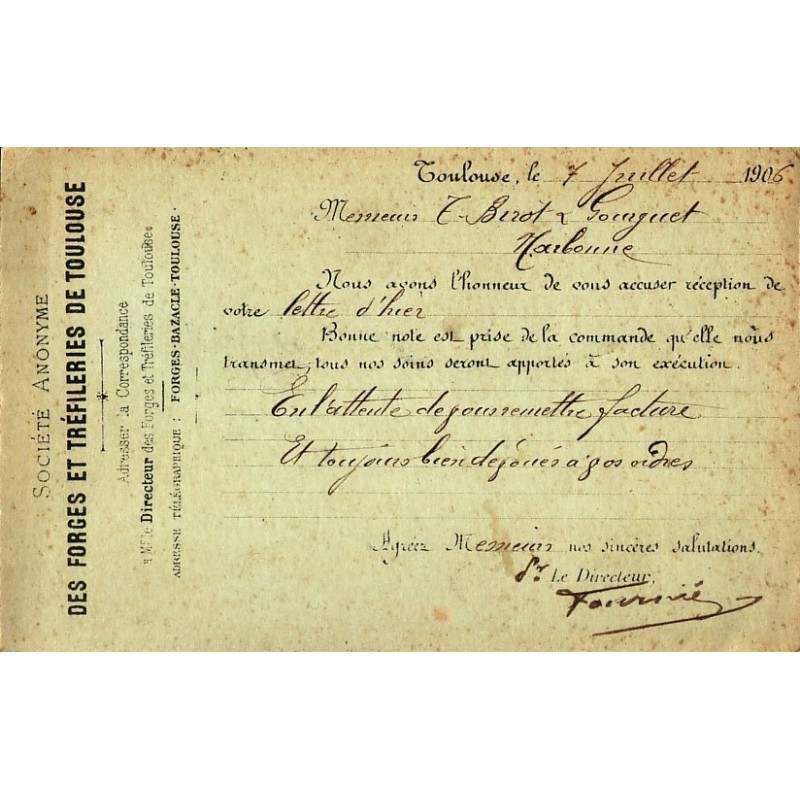 SOCIÉTÉ ANONYME
DES FORGES ET TRÉFILERIES DE TOULOUSE
Adresser la Correspondance
à Mr le Directeur des Forges et Tréfileries de Toulouse
ADRESSE TÉLÉGRAPHIQUE : FORGES-BAZACLE-TOULOUSE
Toulouse, le 7 Juillet 1906
Messieurs T. Birot & Gourguet
Narbonne
Nous avons l'honneur de vous accuser réception de
votre lettre d'hier
Bonne note est prise de la commande qu'elle nous
transmet; tous nos soins seront apportés à son exécution.
En l'attente de vous remettre facture
Et toujours bien dévoués à vos ordres
Agréez Messieurs nos sincères salutations.
Pr Le Directeur,
Fournié